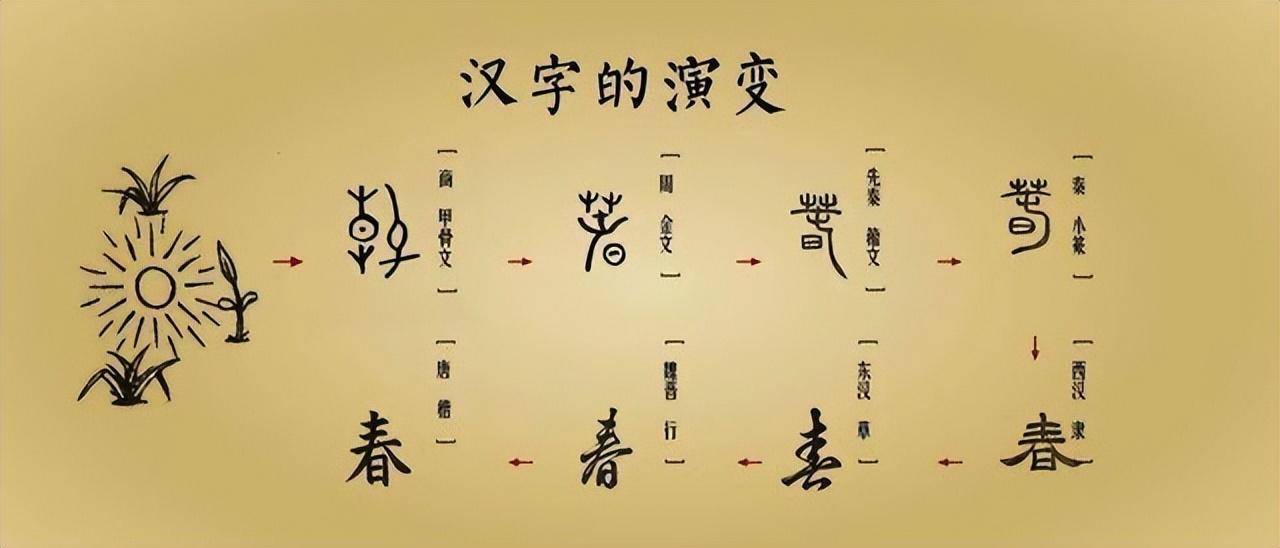 汉字的演变
商 甲骨文
周 金文
先秦 籀文
秦 小篆
西汉 隶
春
东汉 草
春
魏晋 行
春
唐 楷
春